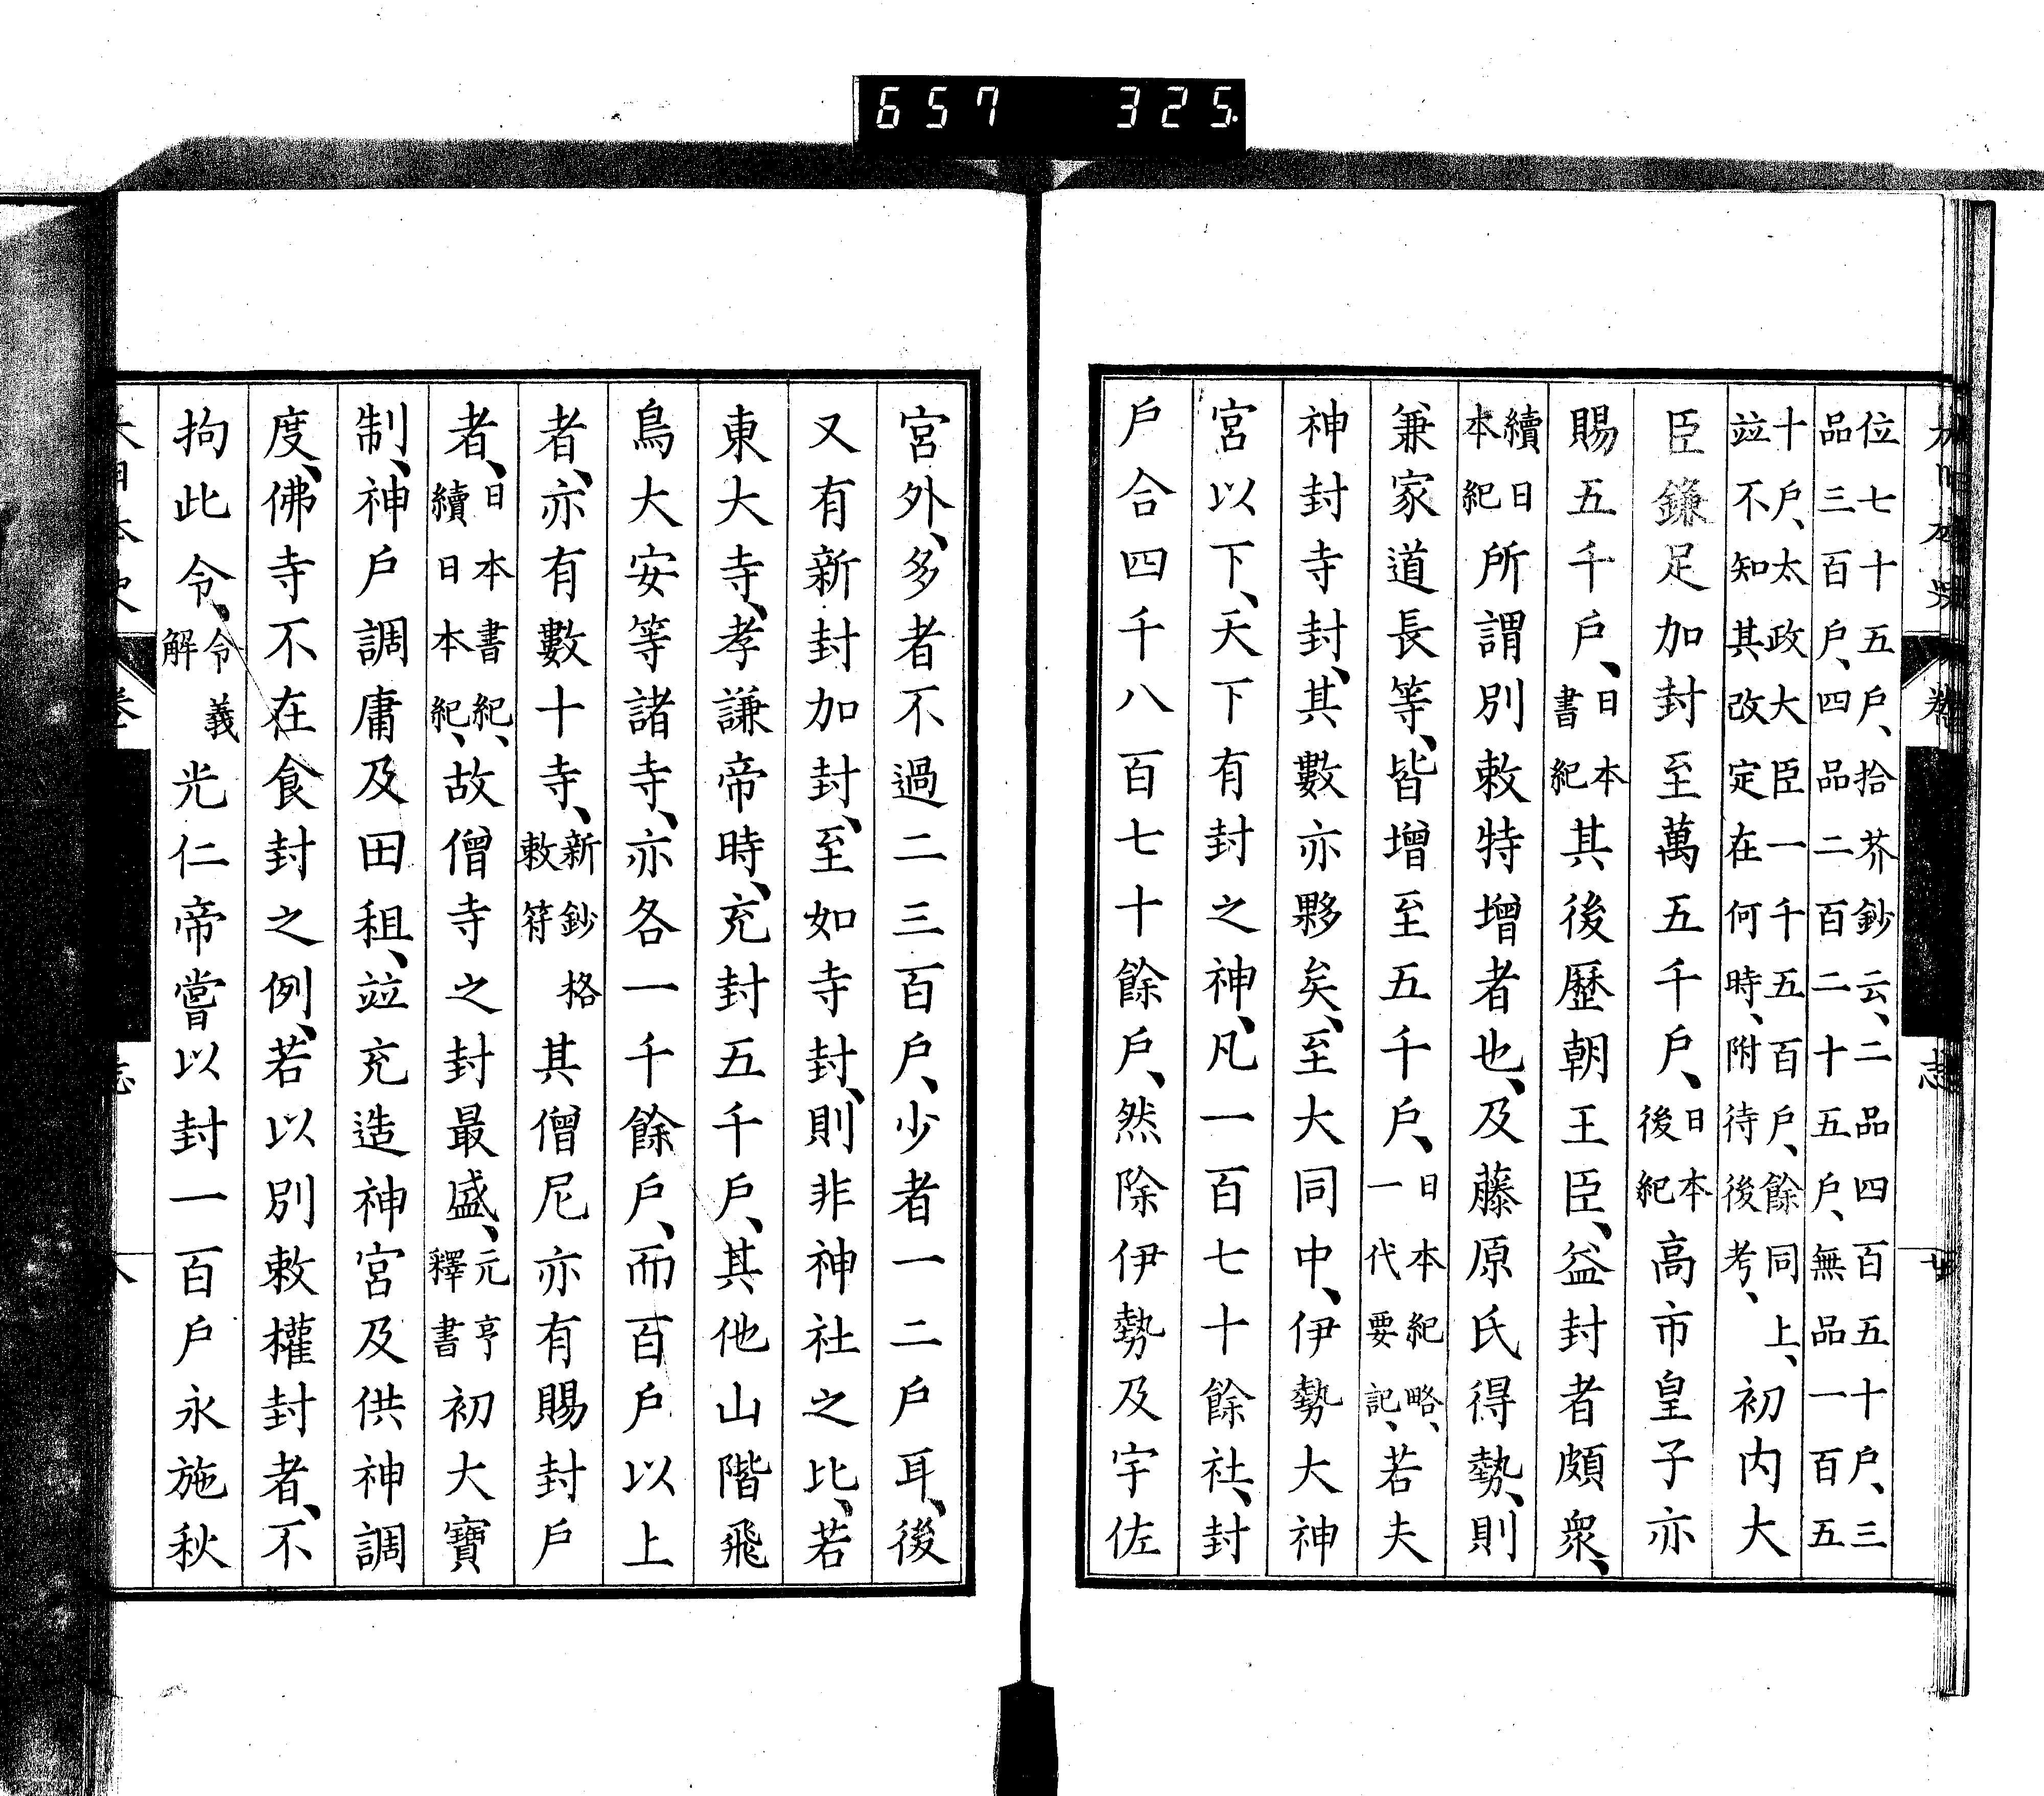 657 325.
位七十五戶、拾芥鈔云、二品四百五十戶、三
品三百戶、四品二百二十五戶、無品一百五
十戶、太政大臣一千五百戶、餘同上、
竝不知其改定在何時、附待後考、初內大
臣鎌足加封至萬五千戶、日本後紀高市皇子亦
賜五千戶、日本書紀其後歷朝王臣、益封者頗衆、
續日本紀所謂別敕特增者也、及藤原氏得勢、則
兼家道長等、皆增至五千戶、日本紀略、一代要記、若夫
神封寺封、其數亦夥矣、至大同中、伊勢大神
宮以下、天下有封之神、凡一百七十餘社、封
戶合四千八百七十餘戶、然除伊勢及宇佐
宮外、多者不過二三百戶、少者一二戶耳、後
又有新封加封、至如寺封、則非神社之比、若
東大寺、孝謙帝時、充封五千戶、其他山階飛
鳥大安等諸寺、亦各一千餘戶、而百戶以上
者、亦有數十寺、新鈔格敕符其僧尼亦有賜封戶
者、日本書紀、續日本紀、故僧寺之封最盛、元亨釋書初大寶
制、神戶調庸及田租、竝充造神宮及供神調
度、佛寺不在食封之例、若以別敕權封者、不
拘此令、令義解光仁帝嘗以封一百戶永施秋